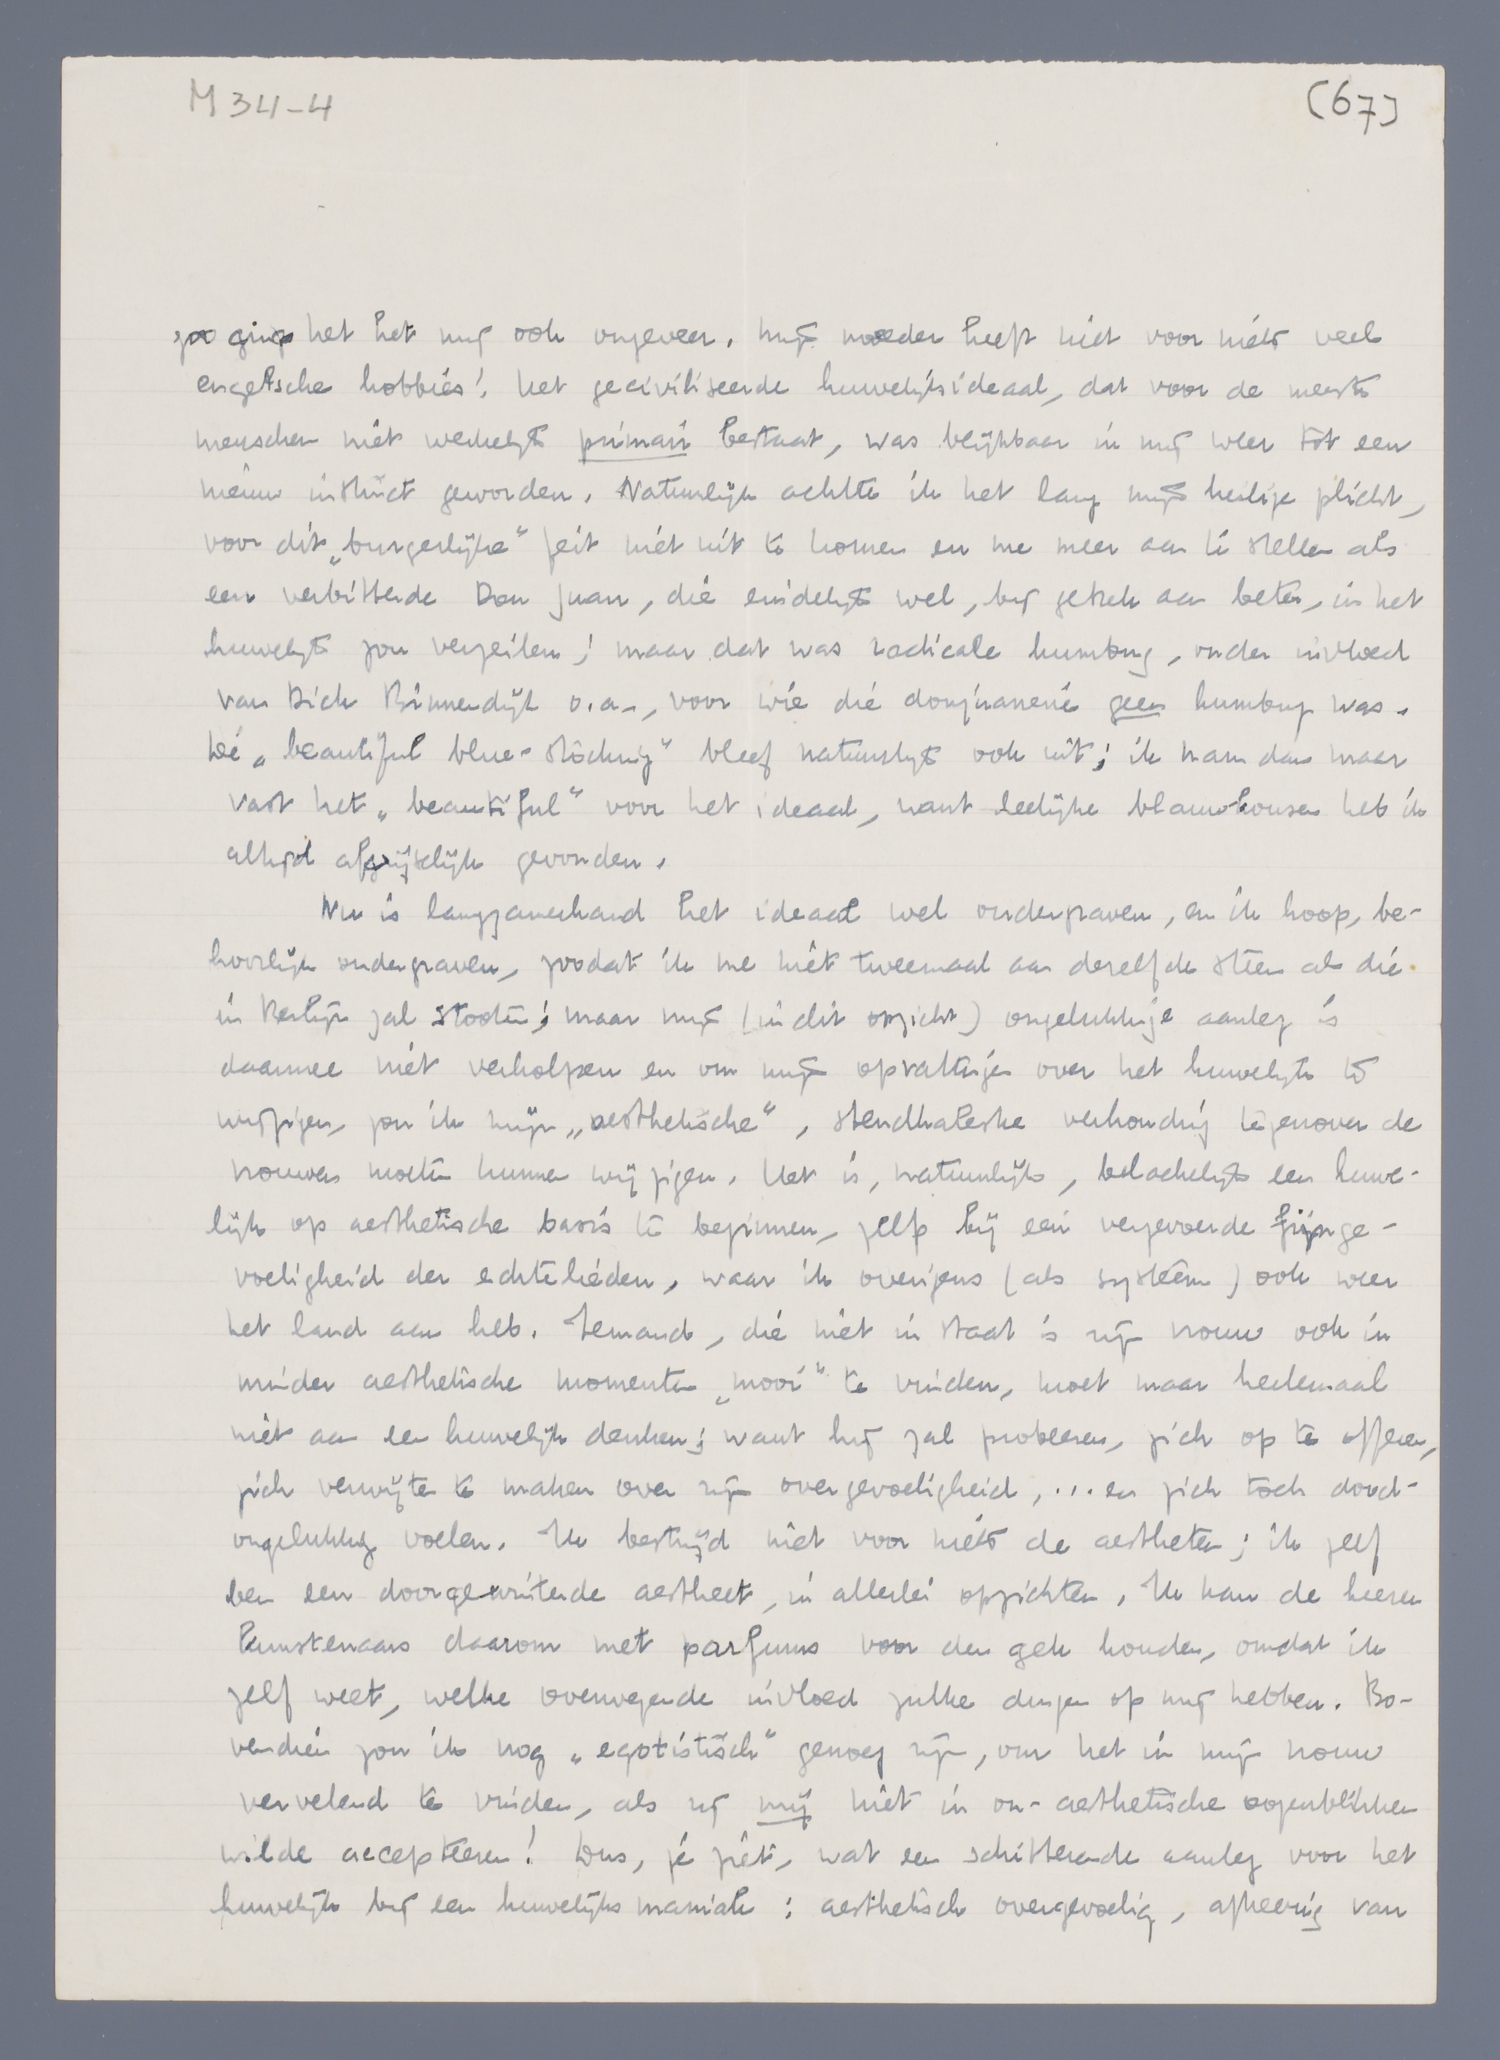 M 34-4
(67)
zoo ging het het mij ook ongeveer. Mijn moeder heeft niet voor niets veel
engelsche hobbies! Het geciviliseerde huwelijksideaal, dat voor de meeste
menschen niet werkelijk primair bestaat, was blijkbaar in mij weer tot een
nieuw instinct geworden. Natuurlijk achtte ik het lang mijn heilige plicht,
voor dit „burgerlijke" feit niet uit te komen en me meer aan te stellen als
een verbitterde Don Juan, die eindelijk wel, bij gebrek aan beter, in het
huwelijk zou verzeilen; maar dat was radicale humbug, onder invloed
van Dick Binnendijk o.a., voor wie die donjuanerie geen humbug was.
De „beautiful blue-stocking" bleef natuurlijk ook uit; ik nam dan maar
vast het „beautiful" voor het ideaal, want leelijke blauwkousen heb ik
altijd afgrijselijk gevonden.
Nu is langzamerhand het ideaal wel ondergraven, en ik hoop, be-
hoorlijk ondergraven, zoodat ik me niet tweemaal aan denzelfden steen als die
in Berlijn zal stooten; maar mijn (in dit opzicht) ongelukkige aanleg is
daarmee niet verholpen en om mijn opvattingen over het huwelijk te
wijzigen, zou ik mijn „aesthetische", stendhaleske verhouding tegenover de
vrouwen moeten kunnen wijzigen. Het is, natuurlijk, belachelijk een huwe-
lijk op aesthetische basis te beginnen, zelfs bij een vergevorderde fijnge-
voeligheid der echtelieden, waar ik overigens (als systeem) ook weer
het land aan heb. Iemand, die niet in staat is zijn vrouw ook in
minder aesthetische momenten „mooi" te vinden, moet maar heelemaal
niet aan een huwelijk denken; want hij zal probeeren, zich op te offeren,
zich verwijten te maken over zijn overgevoeligheid, ... en zich toch dood-
ongelukkig voelen. Ik bestrijd niet voor niets de aestheten; ik zelf
ben een doorgewinterde aestheet, in allerlei opzichten. Ik kan de heeren
kunstenaars daarom met parfums voor den gek houden, omdat ik
zelf weet, welke overwegende invloed zulke dingen op mij hebben. Bo-
vendien zou ik nog „egotistisch" genoeg zijn, om het in mijn vrouw
vervelend te vinden, als zij mij niet in on-aesthetische oogenblikken
wilde accepteeren! Dus, je ziet, wat een schitterende aanleg voor het
huwelijk bij een huwelijksmaniak: aesthetisch overgevoelig, afkeerig van